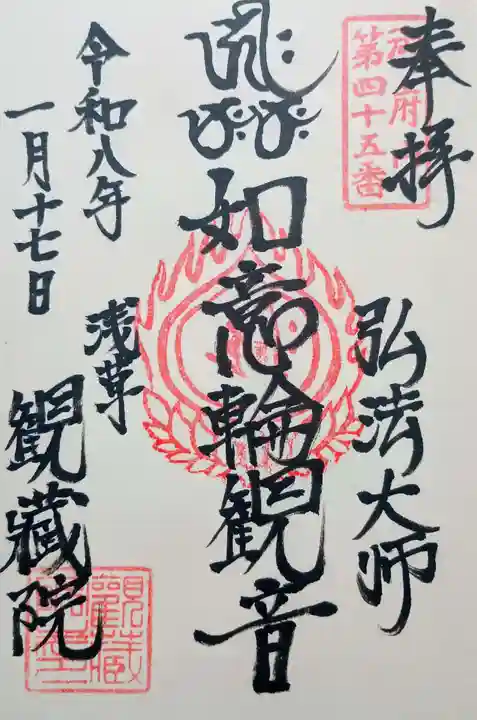 奉拝
第四十五番
弘法大師
如意輪観音
浅草
観蔵院
令和八年
一月十七日